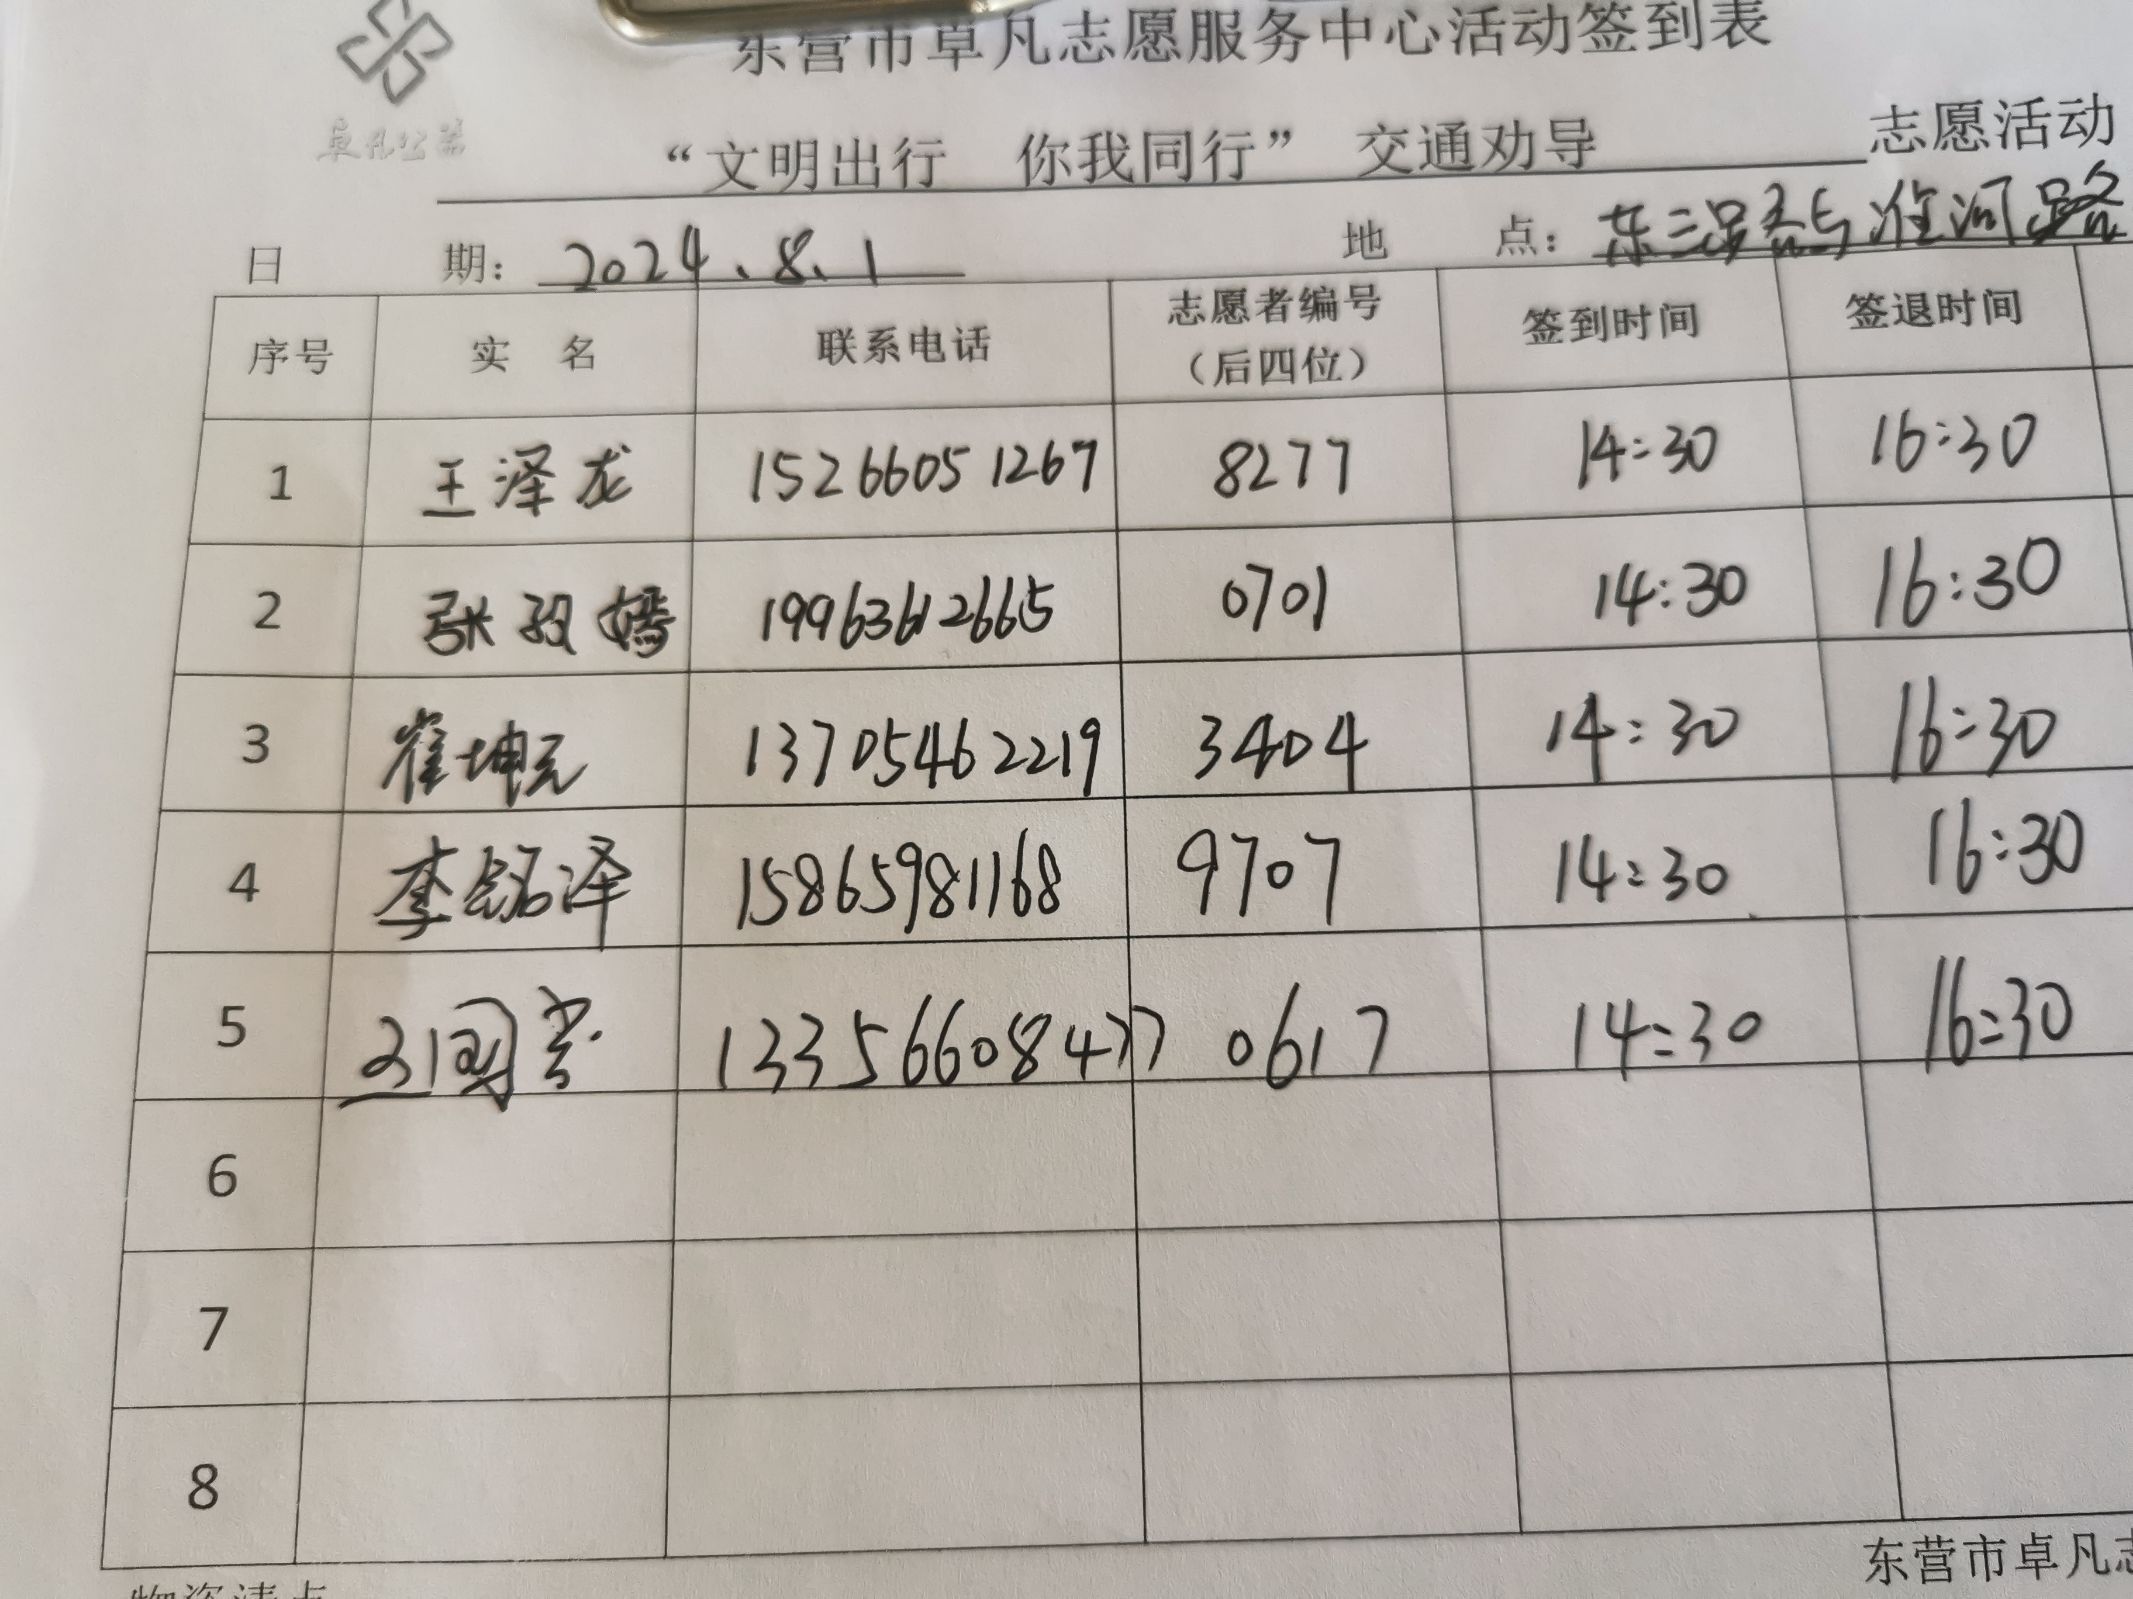 东营市卓凡志愿服务中心活动签到表
卓凡公益
“文明出行 你我同行” 交通劝导 志愿活动
日 期： 2024.8.1 地 点： 东三路与淮河路
序号 实 名 联系电话 志愿者编号（后四位） 签到时间 签退时间
1 王泽龙 15266051267 8277 14:30 16:30
2 张 嫣 19963612665 0701 14:30 16:30
3 崔坤元 13705462219 3404 14:30 16:30
4 李铭泽 15865981168 9707 14:30 16:30
5 13356608477 0617 14:30 16:30
6
7
8
东营市卓凡志
物资清点